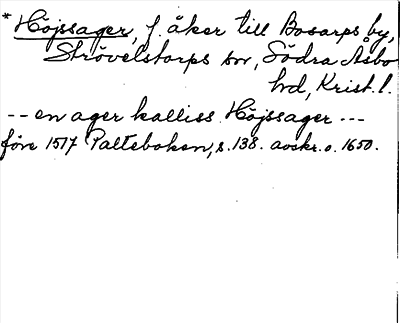 * Höjssager, f. åker till Bosarps by,
Strövelstorps sn, Södra Åsbo
hd, Krist. l.
-- en ager kalliss Höjssager ---
före 1517 Palteboken, s. 138. avskr. o. 1650.